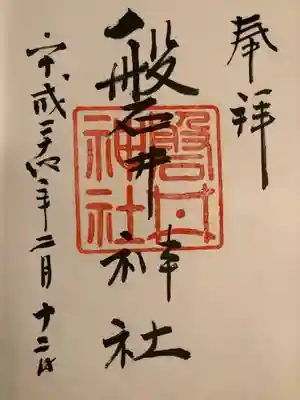 奉拝
磐井神社
磐井
神社
平成二十四年二月十二日